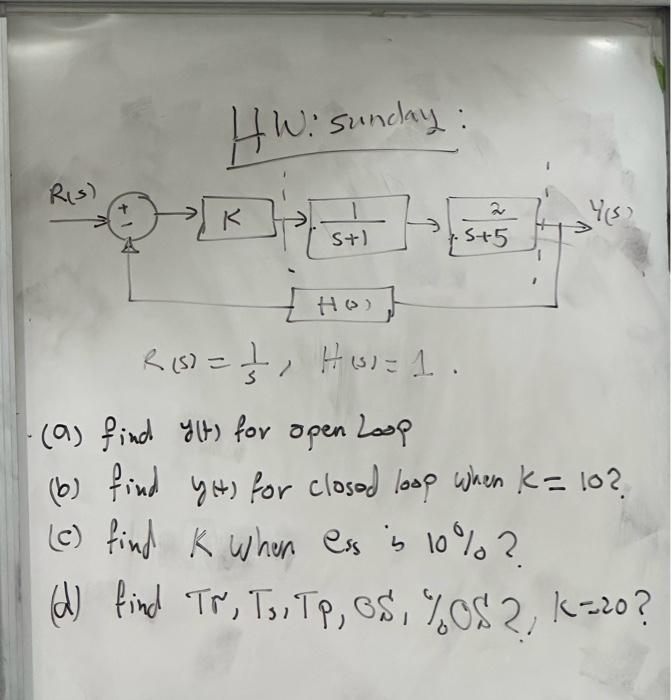 HW: sunday:
R(s) + - K 1/(s+1) 2/(s+5) Y(s)
H(s)
R(s) = 1/s, H(s) = 1.
(a) find y(t) for open Loop
(b) find y(t) for closed loop when K = 10?
(c) find K when ess is 10% ?
(d) find Tr, Ts, Tp, OS, %OS ?, K=20?